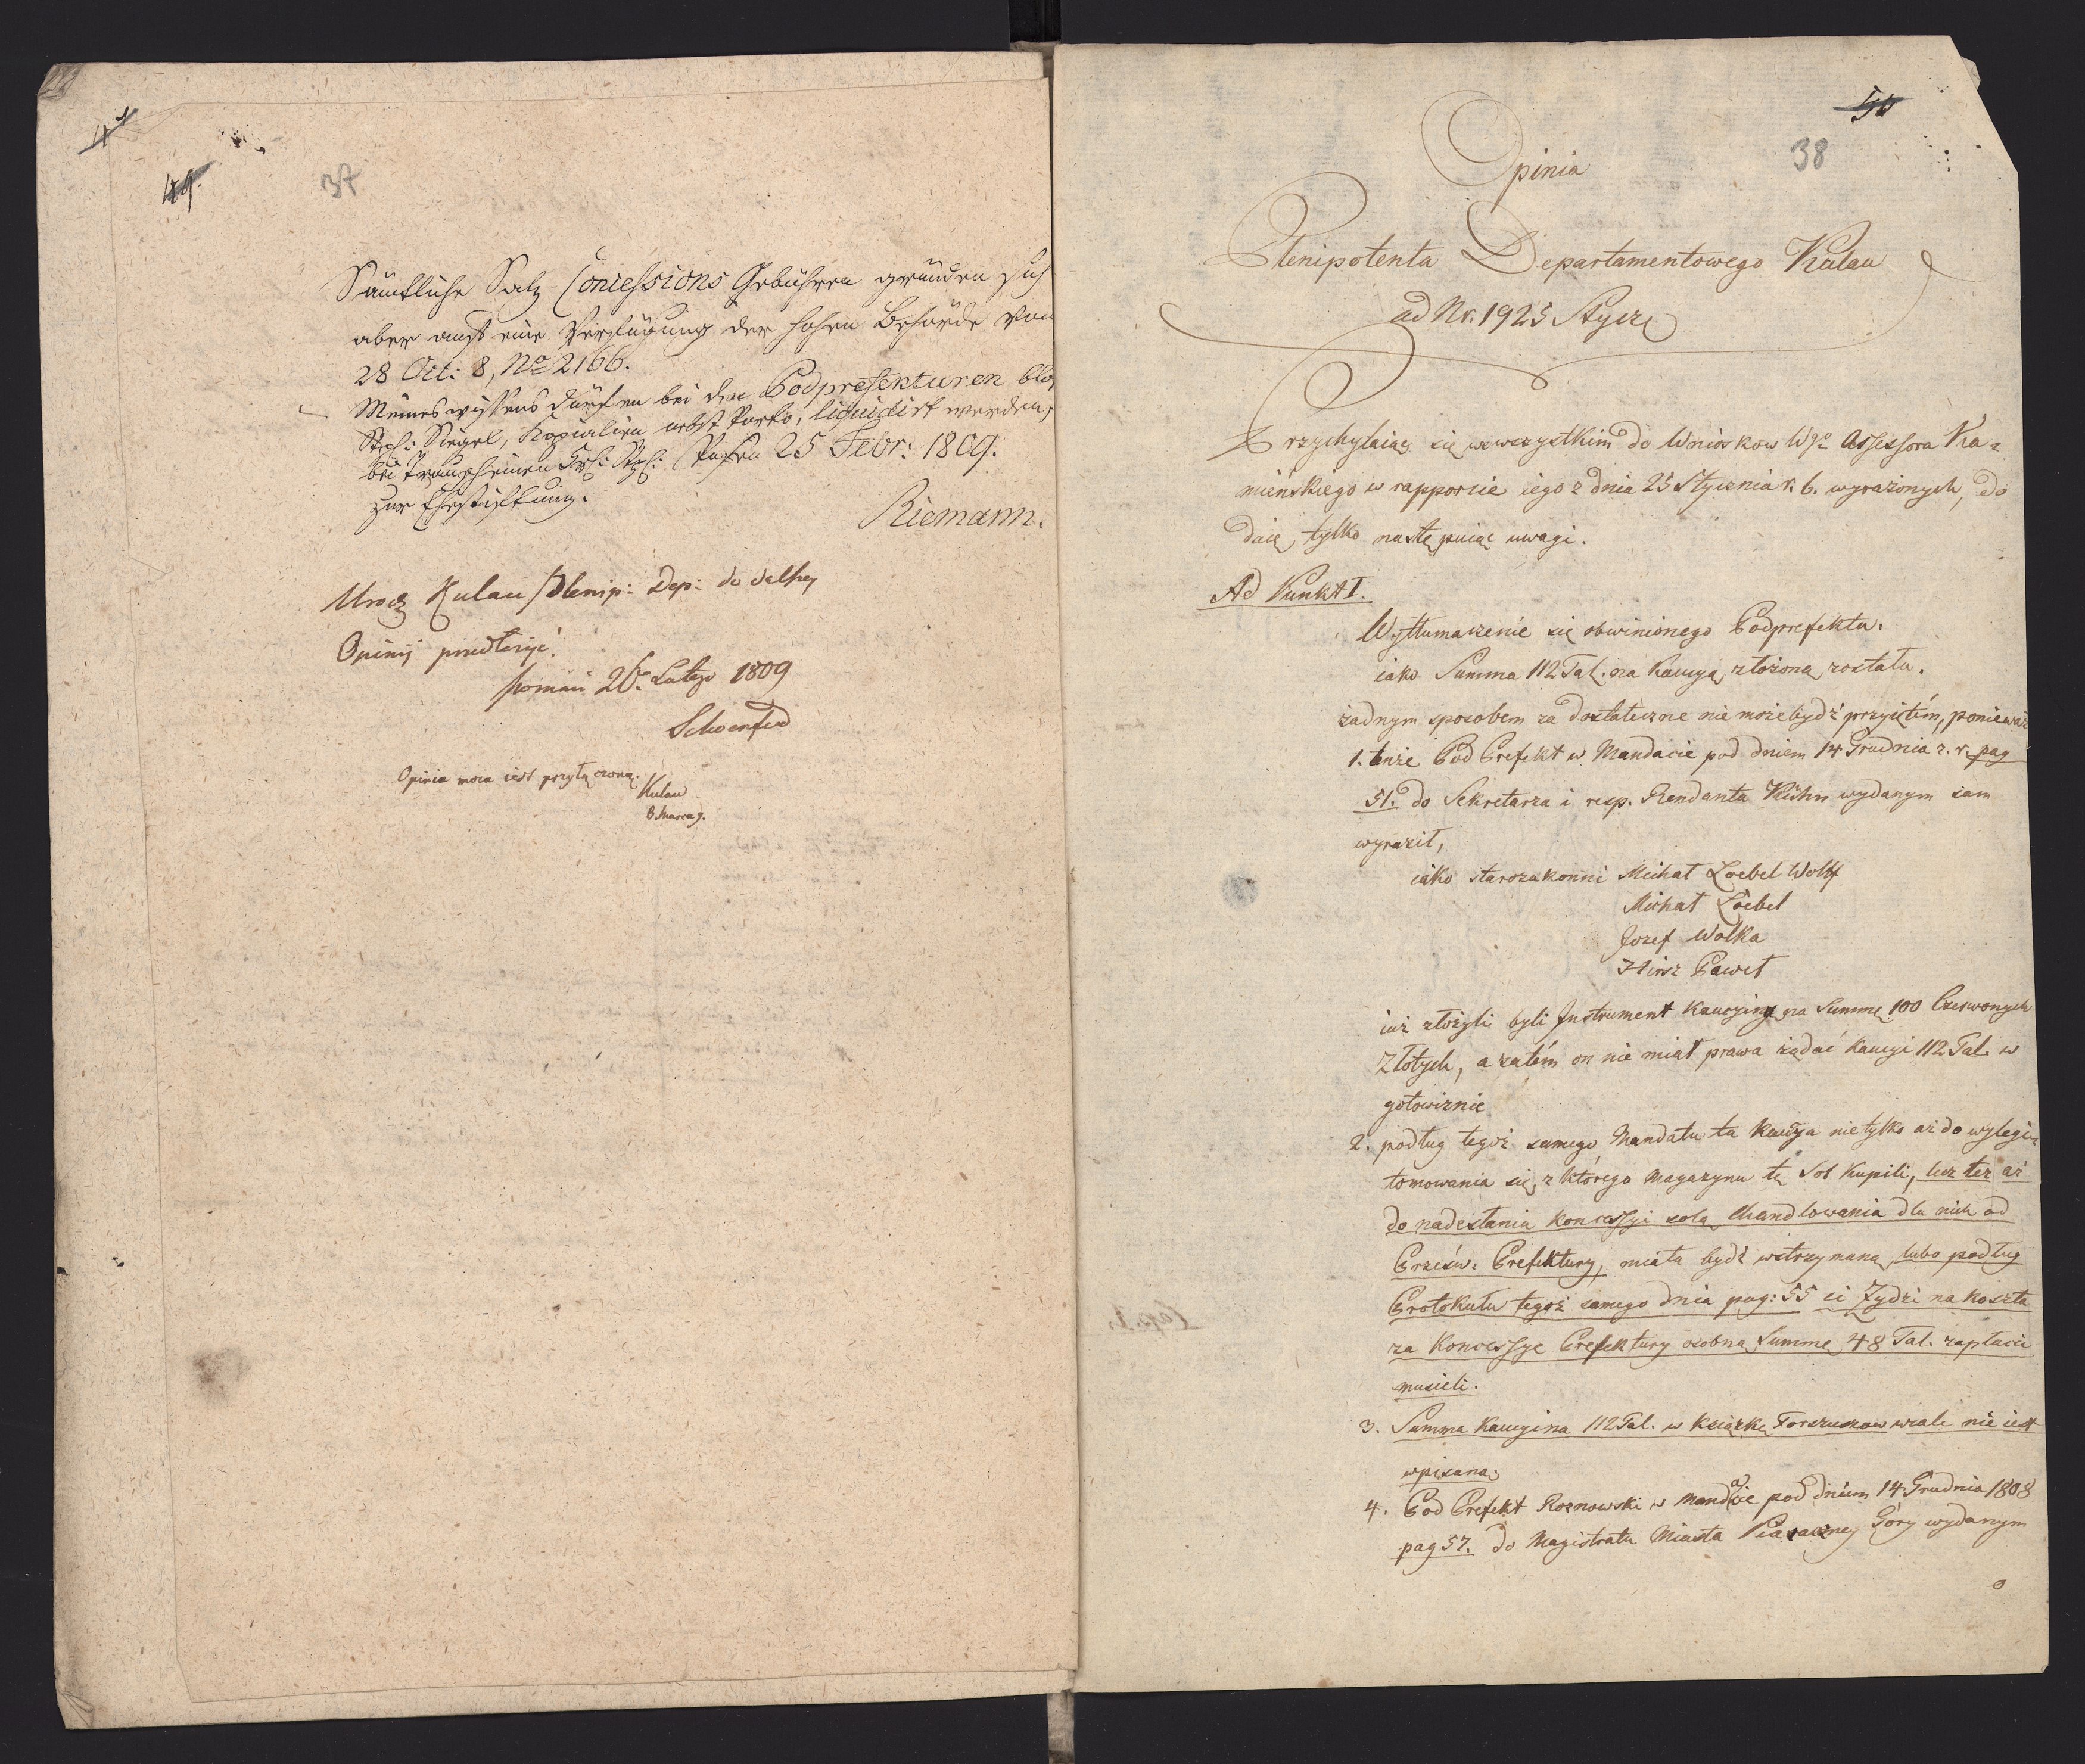 49.
37
Sämtliche Salz Concessions Gebühren gründen sich
aber auf eine Verfügung der hohen Behörde vom
28 Oct: 8, No 2166.
Meines wissens dürfen bei den Podprefekturen blos
Stpl: Siegel, Kopialien nebst Porto, liquidirt werden,
bei Trauscheinen Stpl: Posen 25 Febr: 1809.
zur
Riemann.
Urodz Kulau Plenip: Dep: do dalszey
Opinij przełożyć.
Poznań 26. Lutego 1809
Schoenfeld
Opinia moia iest przyłączona.
Kulau
8. Marca 9.
50
38
Opinia
Plenipotenta Departamentowego Kulau
ad Nr. 1925 Stycz
Przychylaiąc się wewszystkim do Wniosków Wgo Assessora Ka=
mieńskiego w rapporcie iego z dnia 25 Stycznia r. b. wyrażonych, do
daię tylko następuiąc uwagi.
Ad Punkt I.
Wytłumaczenie się obwinionego Podprefekta.
iako Summa 112 Tal. na kaucyą złożoną została.
żadnym sposobem za dostateczne nie może bydź przyiętém, ponieważ
1. tenże Pod Prefekt w Mandacie pod dniem 14 Grudnia z. r. pag
51. do Sekretarza i resp. Rendanta Kühn wydanym sam
wyraził,
iako starozakonni Michał Loebel Wolff
Michał Loebel
Jozef Wolka
Hirsz Paweł
iuż złożyli byli Instrument kaucyiny na Summę 100 Czerwonych
Złotych, a zatém on nie miał prawa żądać kaucyi 112 Tal. w
gotowiznie
2. podług tegoż samego Mandatu ta kaucya nie tylko aż do wylegi=
tomowania się, z którego Magazynu tę Sol kupili, lecz też aż
do nadesłania koncessyi solą chandlowania dla nich od
Prześw. Prefektury, miała bydź wstrzymaną, lubo podług
Protokułu tegoż samego dnia pag: 55 ci Żydzi na koszta
za koncessye Prefektury osobną Summę 48 Tal. zapłacić
musieli.
3. Summa kaucyina 112 Tal. w książkę Forszusów wcale nie iest
wpisana;
4. Pod Prefekt Roznowski w Mandacie pod dniem 14 Grudnia 1808
pag 57. do Magistratu Miasta Piasaczney Góry wydanym